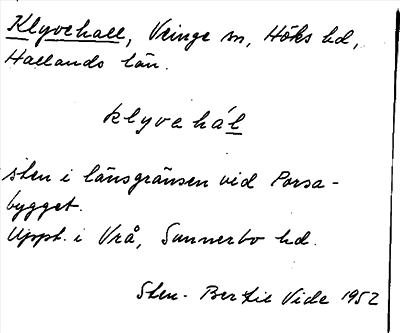 Klyvehall, Veinge sn, Höks hd,
Hallands län.
klyvehál
sten i länsgränsen vid Porsa-
bygget.
Uppt. i Vrå, Sunnerbo hd.
Sten-Bertil Vide 1952